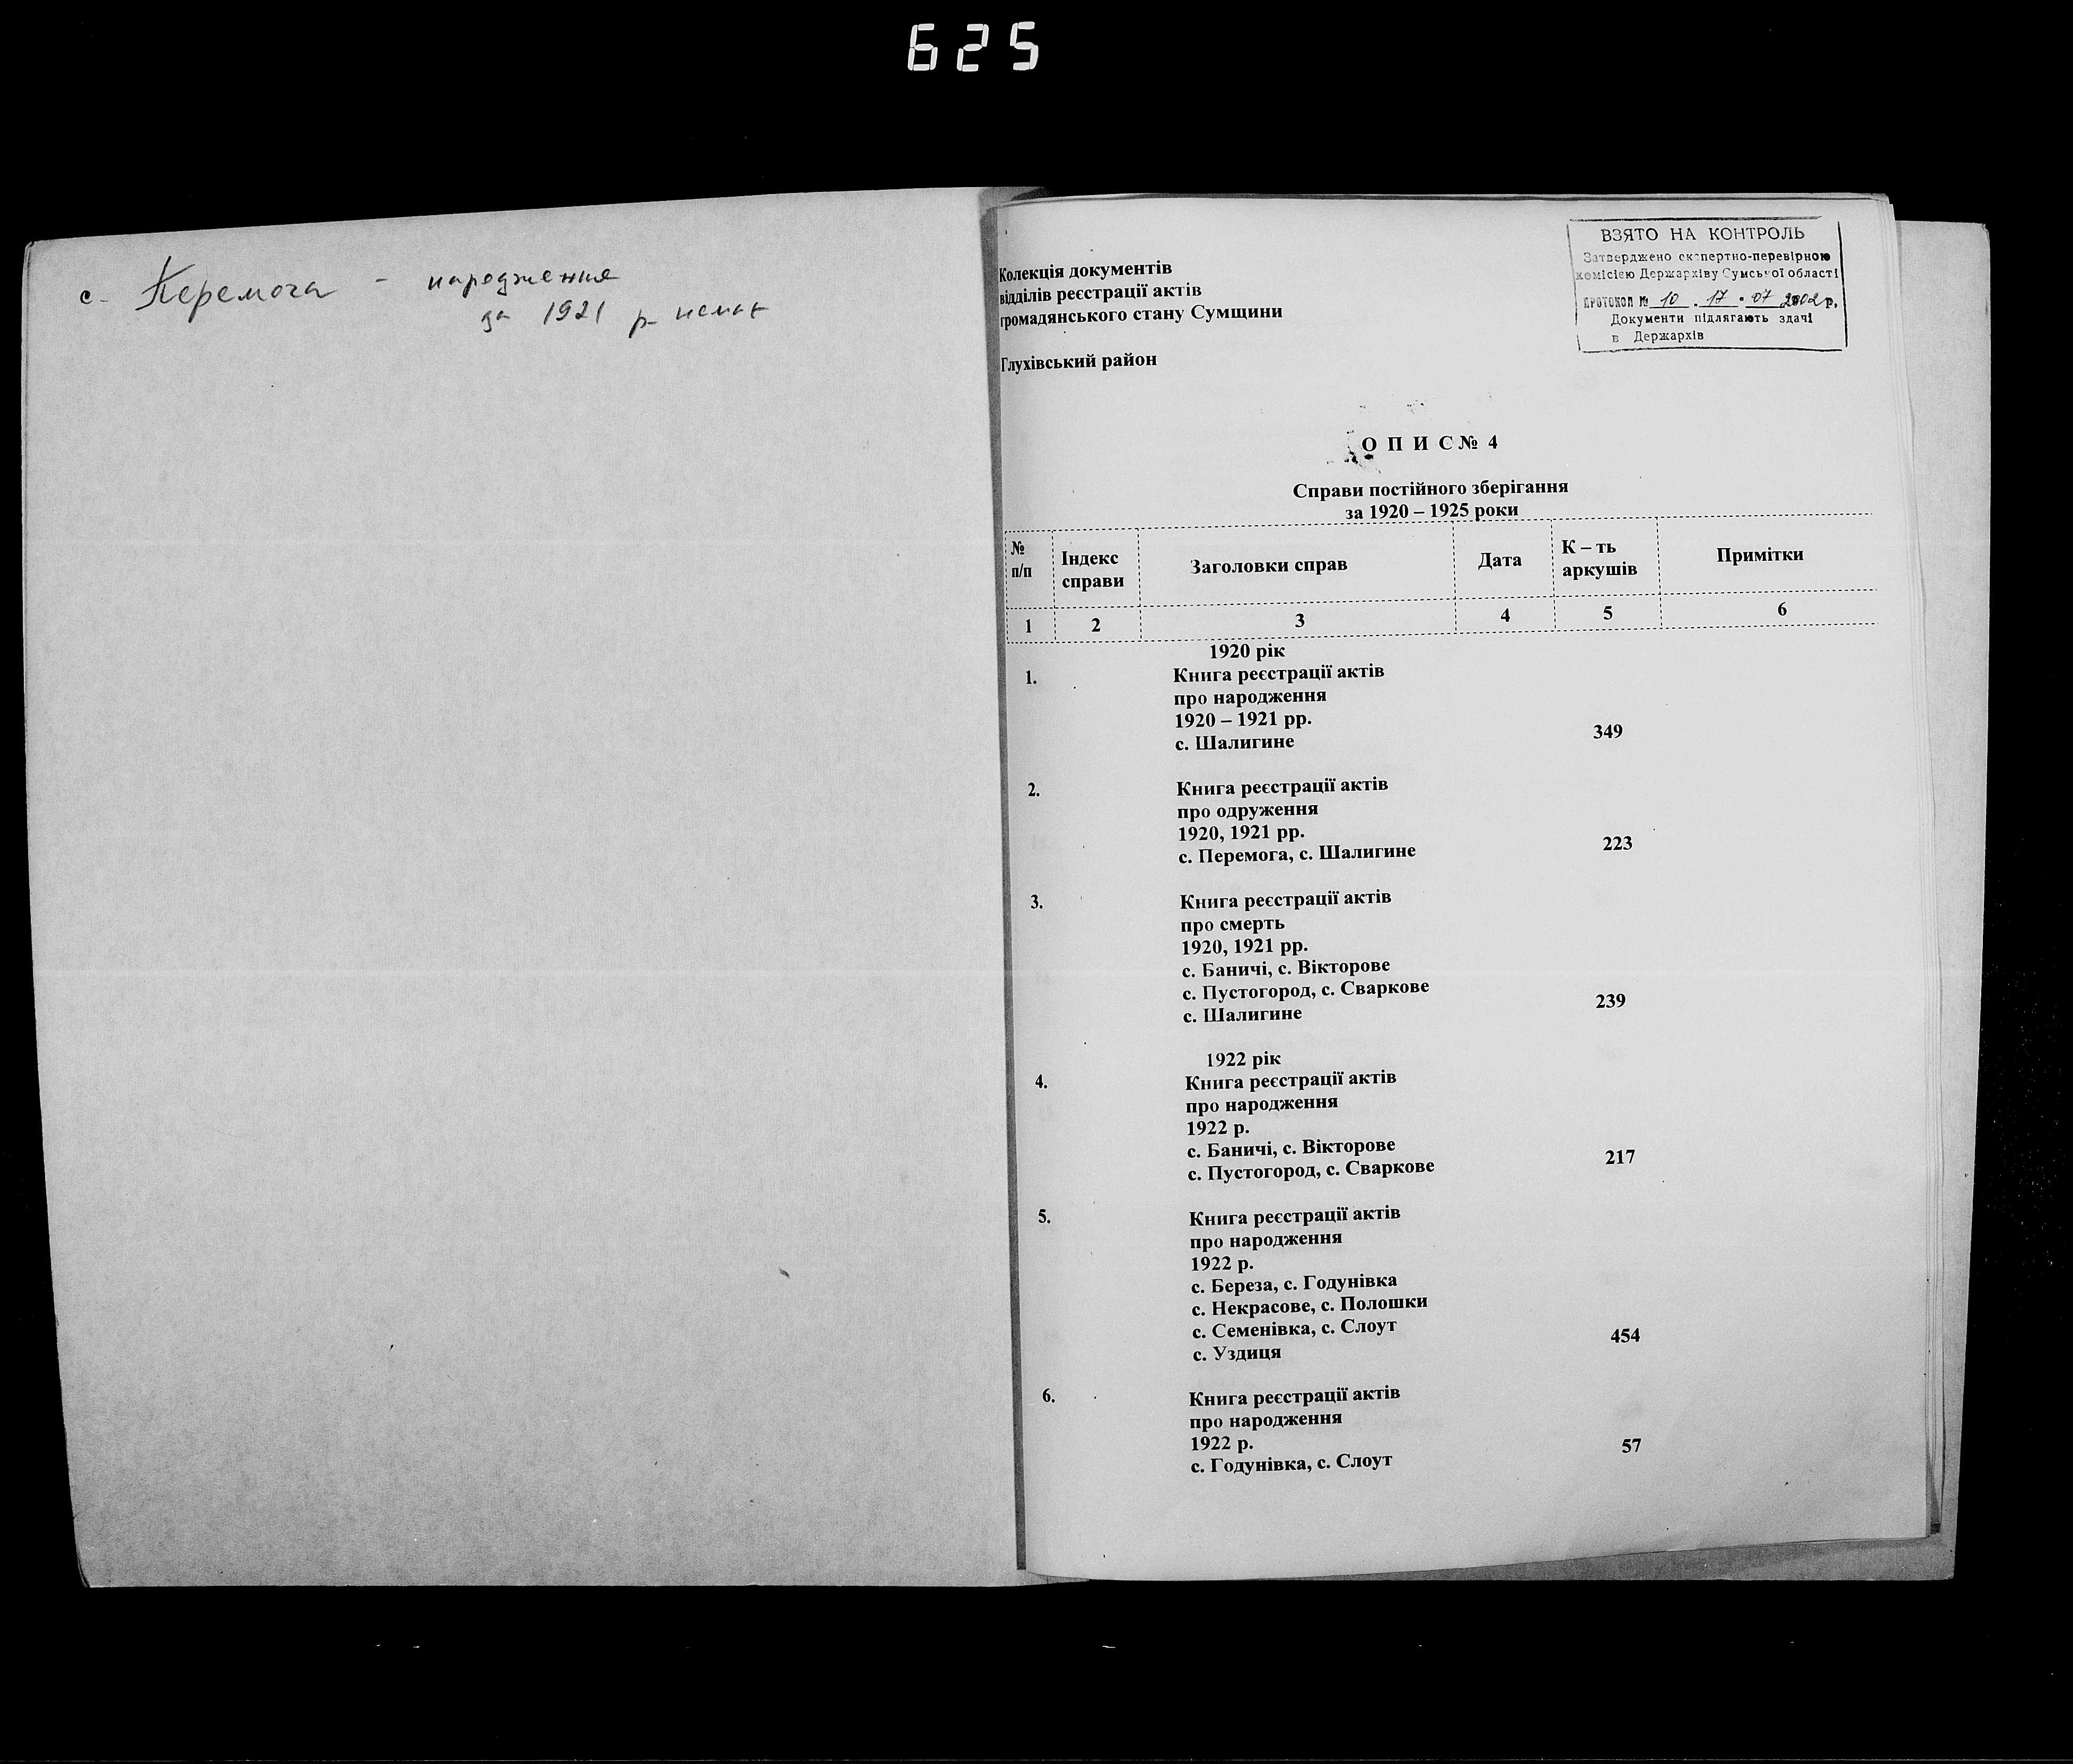 625
с. Перемога - народження
за 1921 р. немає
Колекція документів
відділів реєстрації актів
громадянського стану Сумщини
Глухівський район
ВЗЯТО НА КОНТРОЛЬ
Затверджено експертно-перевірною
комісією Держархіву Сумської області
ПРОТОКОЛ № 10 . 17 . 07 2002 р.
Документи підлягають здачі
в Держархів
О П И С № 4
Справи постійного зберігання
за 1920 – 1925 роки
№ п/п Індекс справи Заголовки справ Дата К – ть аркушів Примітки
1 2 3 4 5 6
1920 рік
1. Книга реєстрації актів
про народження
1920 – 1921 рр.
с. Шалигине 349
2. Книга реєстрації актів
про одруження
1920, 1921 рр.
с. Перемога, с. Шалигине 223
3. Книга реєстрації актів
про смерть
1920, 1921 рр.
с. Баничі, с. Вікторове
с. Пустогород, с. Сваркове
с. Шалигине 239
1922 рік
4. Книга реєстрації актів
про народження
1922 р.
с. Баничі, с. Вікторове
с. Пустогород, с. Сваркове 217
5. Книга реєстрації актів
про народження
1922 р.
с. Береза, с. Годунівка
с. Некрасове, с. Полошки
с. Семенівка, с. Слоут
с. Уздиця 454
6. Книга реєстрації актів
про народження
1922 р.
с. Годунівка, с. Слоут 57